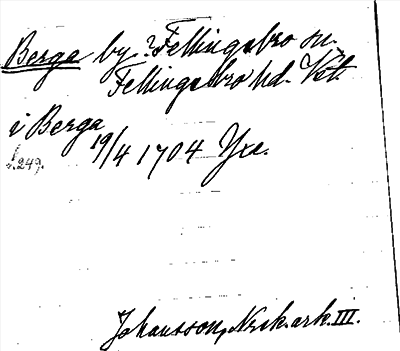 Berga by, ? Fellingsbro sn.
Fellingsbro hd. Vstl.
i Berga
19/4 1704 Yxe.
s. 249.
Johansson, Nrk. ark. III.